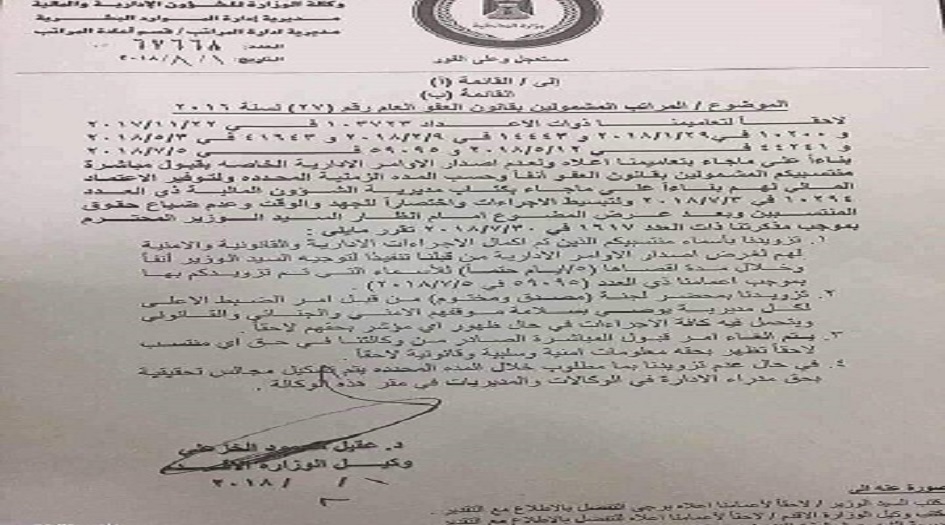 وكالة الوزارة للشؤون الادارية والمالية
مديرية إدارة الموارد البشرية
مديرية ادارة المراتب / قسم اعادة المراتب
العدد: ٦٧٦٦٨
التاريخ: ٢٠١٨/٨/١
مستعجل وعلى الفور
إلى / القائمة (أ)
القائمة (ب)
الموضوع / المراتب المشمولين بقانون العفو العام رقم (٢٧) لسنة ٢٠١٦
لاحقاً لتعاميمنا ذوات الاعداد ١٠٣٧٢٣ في ٢٠١٧/١١/٢٢
و ١٠٢٠٠ في ٢٠١٨/١/٢٩ و ١٤٤٤٣ في ٢٠١٨/٢/٩ و ٤١٦٤٣ في ٢٠١٨/٥/٣
و ٤٤٢٤٦ في ٢٠١٨/٥/١٢ و ٥٩٠٩٥ في ٢٠١٨/٧/٥
بناءاً على ماجاء بتعاميمنا اعلاه ولعدم اصدار الاوامر الادارية الخاصه بقبول مباشرة
منتسبيكم المشمولين بقانون العفو آنفاً وحسب المده الزمنية المحدده ولتوفير الاعتماد
المالي لهم بناءاً على ماجاء بكتاب مديرية الشؤون المالية ذي العدد
١٠٢٩٤ في ٢٠١٨/٧/٣ ولتبسيط الاجراءات واختصاراً للجهد والوقت وعدم ضياع حقوق
المنتسبين وبعد عرض الموضوع امام انظار السيد الوزير المحترم
بموجب مذكرتنا ذات العدد ١٦١٧ في ٢٠١٨/٧/٣٠ تقرر مايلي :
١. تزويدنا بأسماء منتسبيكم الذين تم اكمال الاجراءات الادارية والقانونية والامنية
لهم لغرض اصدار الاوامر الادارية من قبلنا تنفيذاً لتوجيه السيد الوزير آنفاً
وخلال مدة اقصاها (٥/ايام حتماً) للأسماء التي تم تزويدكم بها
بموجب اعمامنا ذي العدد (٥٩٠٩٥ في ٢٠١٨/٧/٥)
٢. تزويدنا بمحضر لجنة (مصدق ومختوم) من قبل امر الضبط الاعلى
لكل مديرية يوصي بسلامة موقفهم الامني والجنائي والقانوني
ويتحمل فيه كافة الاجراءات في حال ظهور اي مؤشر بحقهم لاحقاً.
٣. يتم الغاء امر قبول المباشرة الصادر من وكالتنا في حق اي منتسب
لاحقاً تظهر بحقه معلومات امنية وسلبية وقانونية لاحقاً.
٤. في حال عدم تزويدنا بما مطلوب خلال المده المحدده يتم تشكيل مجالس تحقيقية
بحق مدراء الادارة في الوكالات والمديريات في مقر هذه الوكالة .
د. عقيل محمود الخزعلي
وكيل الوزارة الاقدم
٢٠١٨ / / ١
صورة عنه الى
مكتب السيد الوزير / لاحقاً لأعمامنا اعلاه يرجى التفضل بالاطلاع مع التقدير .
مكتب وكيل الوزارة الاقدم / لاحقاً لأعمامنا اعلاه للتفضل بالاطلاع مع التقدير